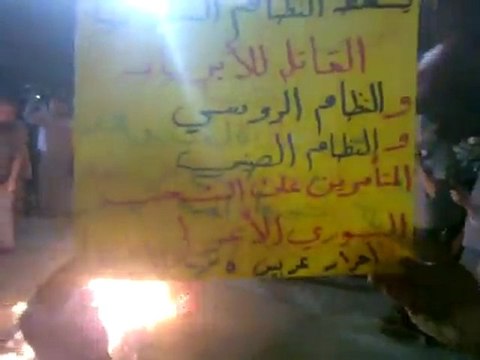 يسقط النظام
القاتل للأبرياء
والنظام الروسي
والنظام الصيني
المتأمرين على الشعب
السوري الأعزل
أحرار عربين